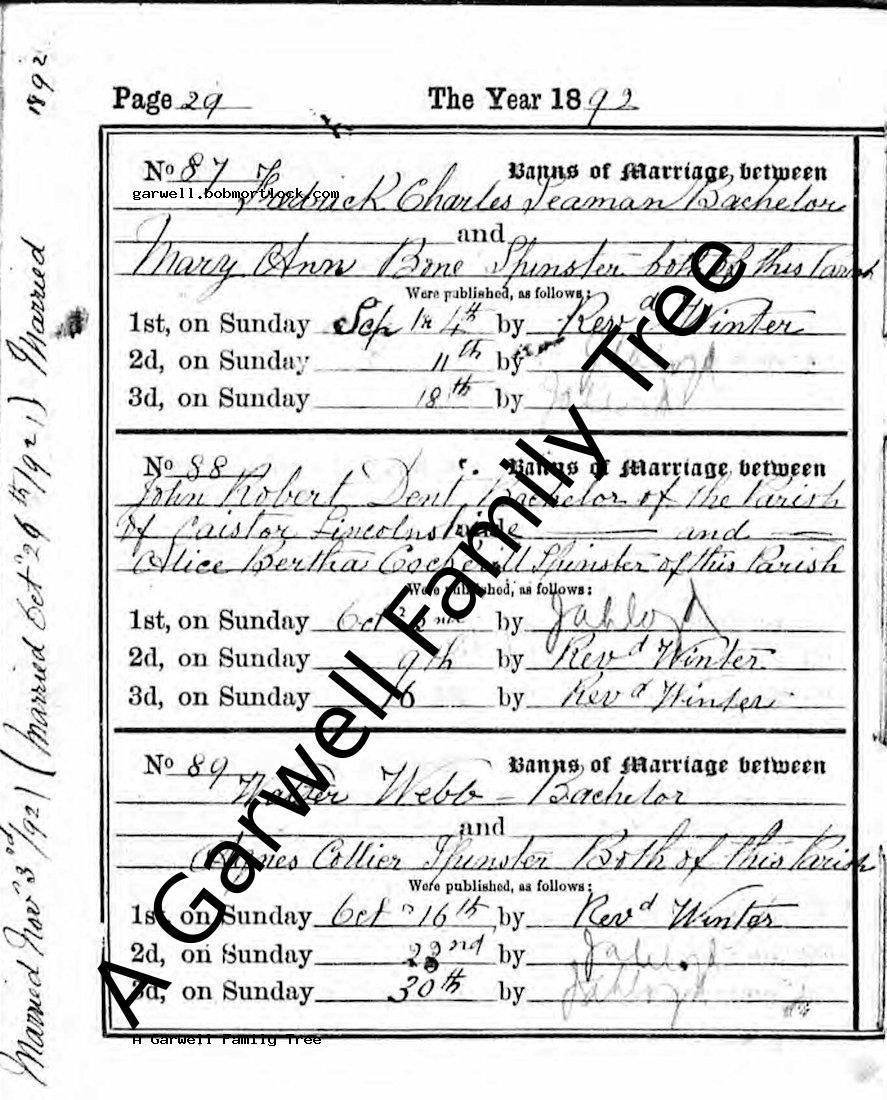 Page 29 The Year 1892
No 87 Banns of Marriage between
garwell.bobmortlock.com
Fredrick Charles Seaman Bachelor
and
Mary Ann Bone Spinster both of this Parish
Were published, as follows:
1st, on Sunday Sep 4th by Revd Winter
2d, on Sunday 11th by
3d, on Sunday 18th by
No 88 Banns of Marriage between
John Robert Dent Bachelor of the Parish
of Caistor Lincolnshire and
Alice Bertha Cockerill Spinster of this Parish
Were published, as follows:
1st, on Sunday Oct 2nd by
2d, on Sunday 9th by Revd Winter
3d, on Sunday 16 by Revd Winter
No 89 Banns of Marriage between
Walter Webb - Bachelor
and
Agnes Collier Spinster Both of this Parish
Were published, as follows:
1st, on Sunday Oct 16th by Revd Winter
2d, on Sunday 23nd by
3d, on Sunday 30th by
A Garwell Family Tree
A Garwell Family Tree
Married Nov 3rd/92) (Married Oct 26th/92) Married 1892